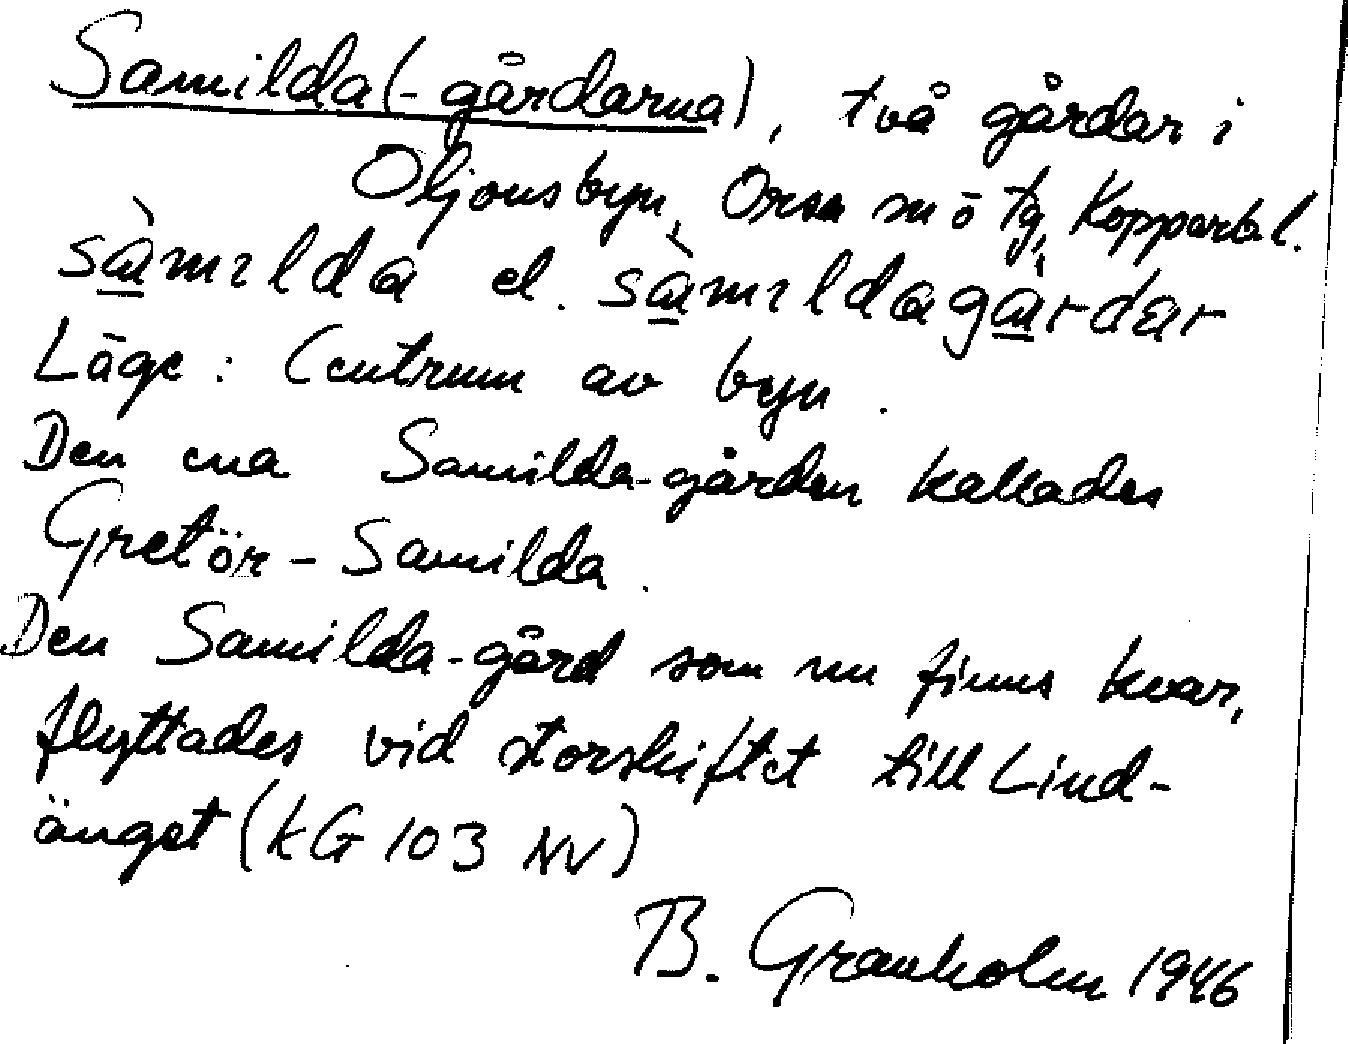 Samilda(-gårdarna), två gårdar i
Oljonsbyn, Orsa sn o tg, Kopparb. l.
sàmılda el. sàmıldagàrdar
Läge: Centrum av byn.
Den ena Samilda-gården kallades
Gretör-Samilda.
Den Samilda-gård som nu finns kvar,
flyttades vid storskiftet till Lind-
änget (KG 103 NV)
B. Granholm 1946